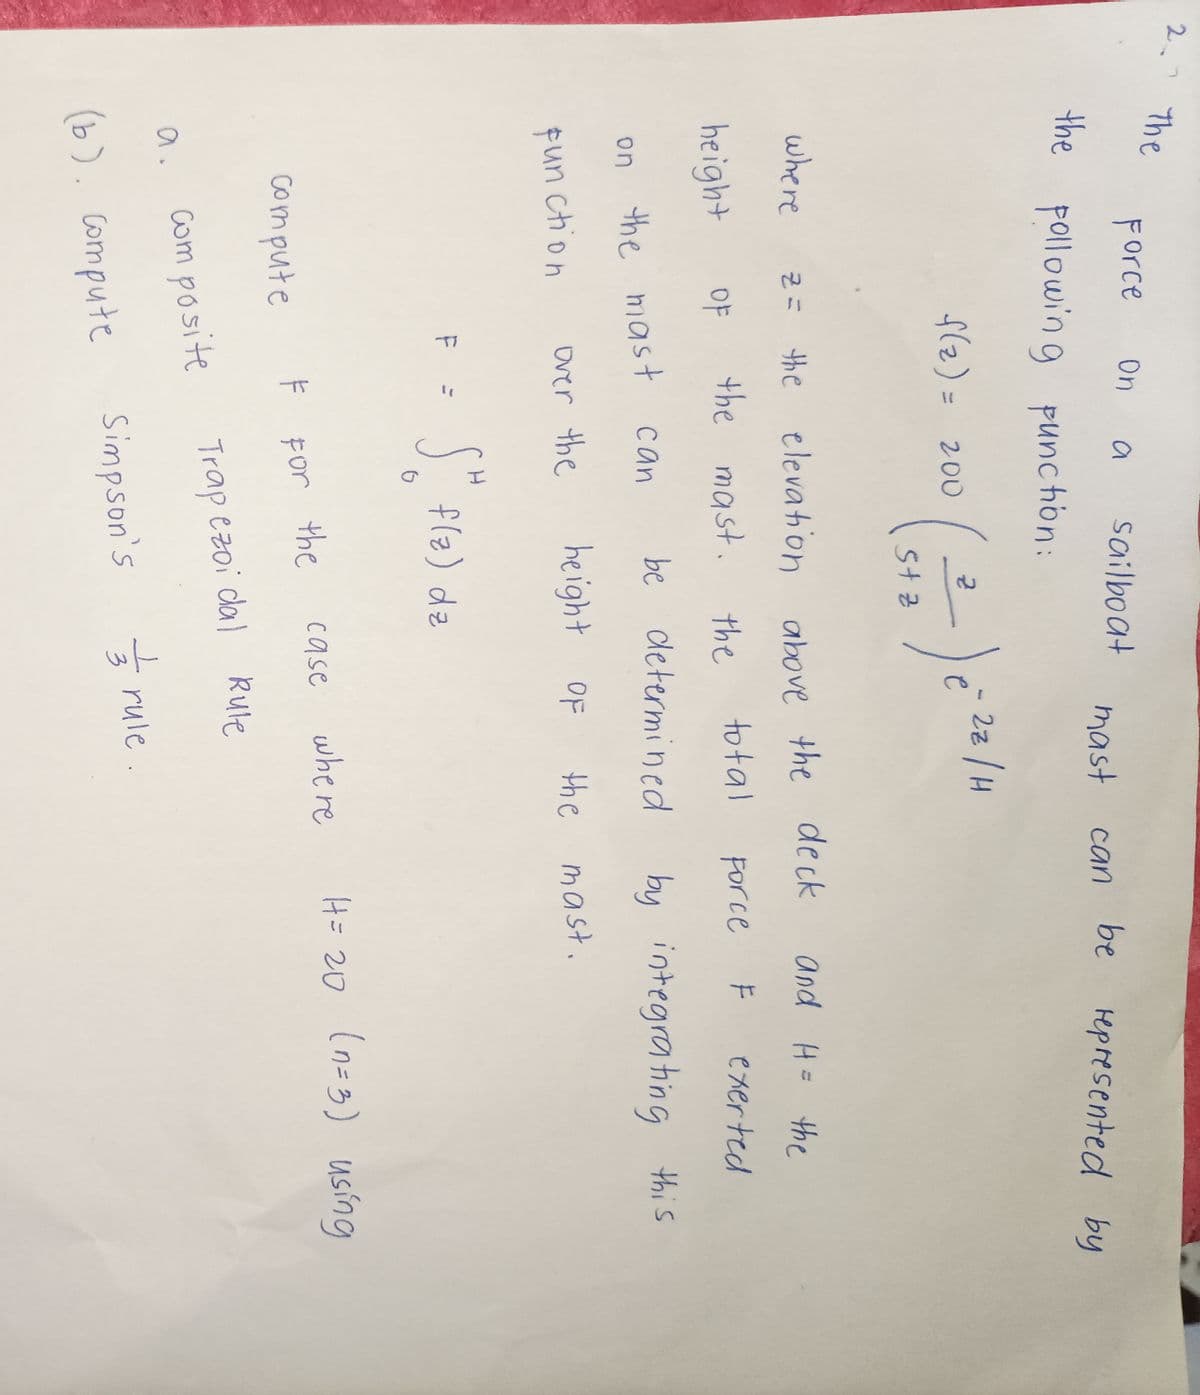 2. The Force on a sailboat mast can be represented by
the following function:
f(z) = 200 ( z / 5+z ) e^-2z/H
where z = the elevation above the deck and H = the
height of the mast. the total Force F exerted
on the mast can be determined by integrating this
function over the height of the mast.
F = ∫₀ᴴ f(z) dz
compute F for the case where H = 20 (n=3) using
a. composite Trapezoidal Rule
(b). Compute Simpson's 1/3 rule.